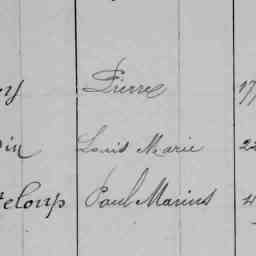 Pierre 17
in Louis Marie 22
eloup Paul Marius 4